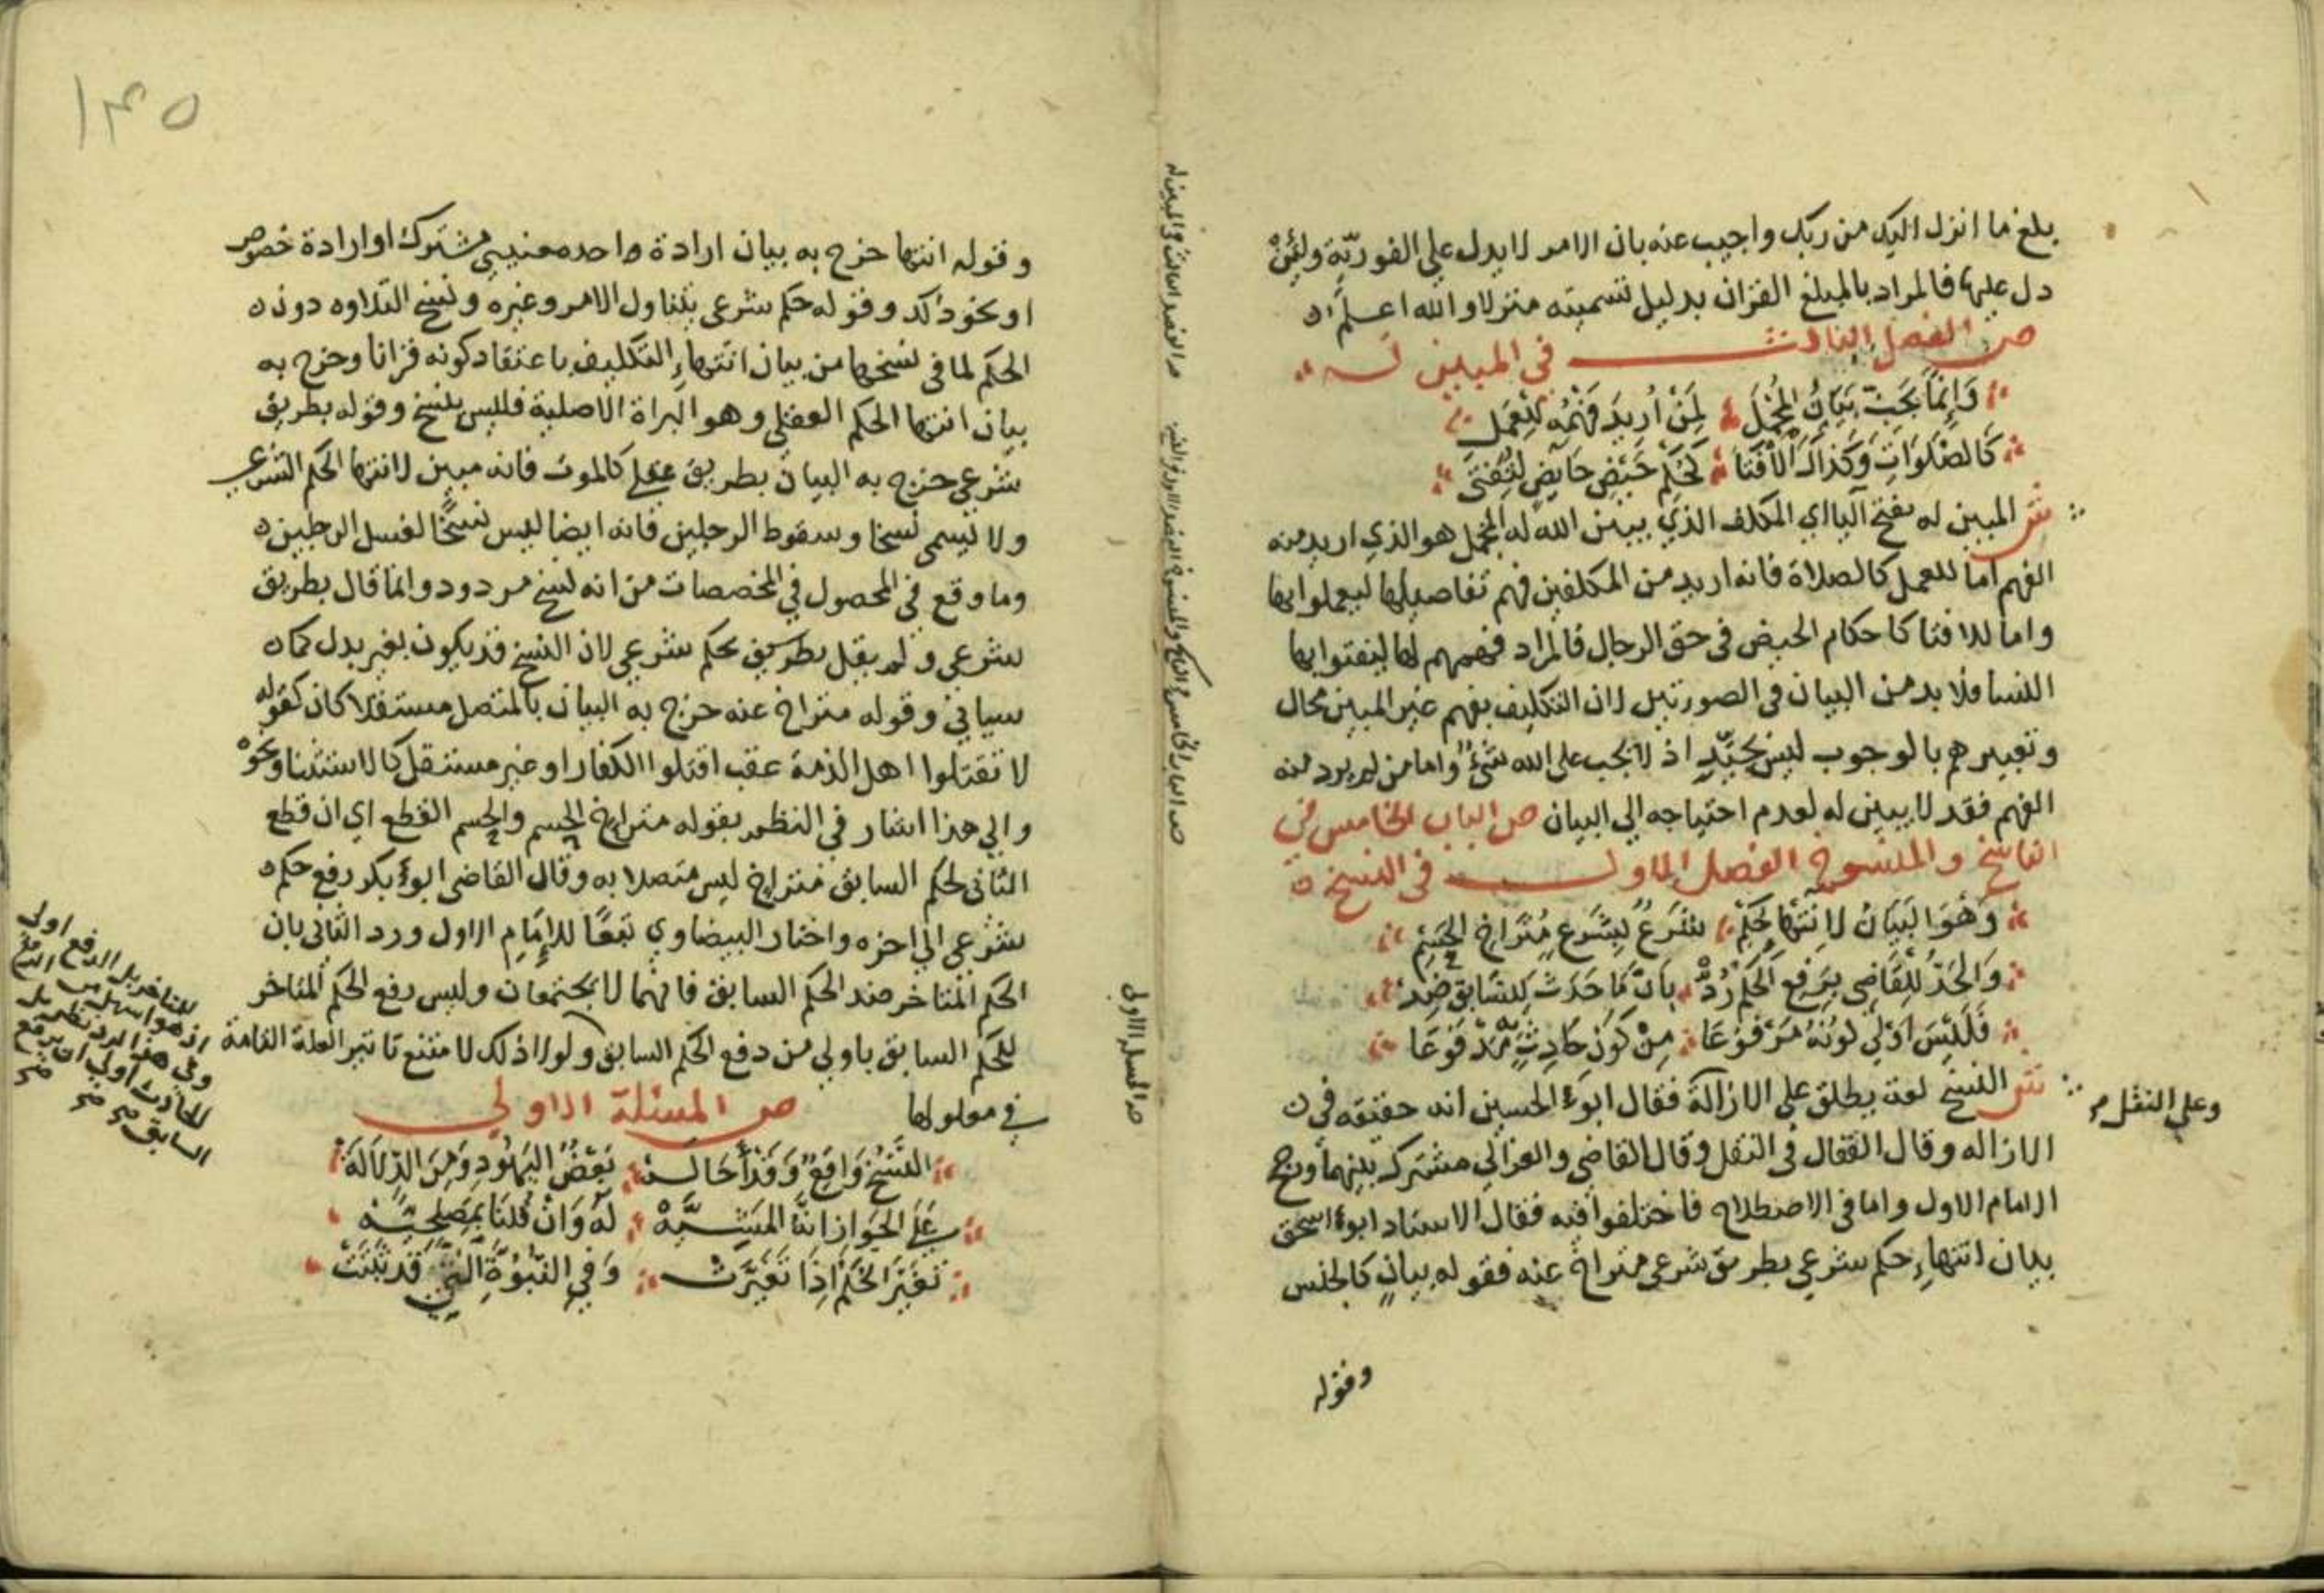 بلغ ما انزل اليك من ربك واجيب عنه بان الامر لا يدل علي الفوريّة ولئِنْ
دل عليها فالمراد بالمبلغ القران بدليل تسميته منزلا والله اعلم
ص الفصل الثالث في المبين له
وَإنَّمَا يَجبُ بَيَانُ المُجْمَلِ لِمَنْ أُرِيدَ فَهْمُه لِلْعَمَلِ
كَالصَّلَوَاتِ وَكَذَاكَ الْأفْتَا كَحُكْمِ حَيْضِ حَايضٍ لِيُفْتَى
ش المبين له بفتح اليا اي المكلف الذي يبين الله له المجمل هو الذي اريد منه
الفهم اما للعمل كالصلاة فانه اريد من المكلفين فهم تفاصيلها ليعملوا بها
واما للافتا كاحكام الحيض في حق الرجال فالمراد فهمهم لها ليفتوا بها
النسا فلا بد من البيان في الصورتين لان التكليف بفهم غير المبين محال
وتعبيرهم بالوجوب ليس بجيّدٍ اذ لا يجب علي الله شيءٌ واما من لم يرد منه
الفهم فقد لا يبين له لعدم احتياجه الي البيان ص الباب الخامس في
الناسخ والمنسوخ الفصل الاول في النسخ
وَهْوَ البَيَانُ لِانْتِهَا حُكْمٍ شُرِعْ بِشَرْعٍ مُتَرَاخِ الحَسْمِ
وَالحَدُّ لِلْقَاضِي بِرَفعِ الحُكْمِ رُدّْ بِأنَّ مَا حَدَثَ لِلسَّابِقِ ضِدْ
فَلَيْسَ اوْلَي كَوْنُهُ مَرْفُوعَا مِنْ كَوْنِ حَادِثٍ مَدْفُوعَا
ش النسخ لغة يطلق علي الازالة فقال ابو الحسين انه حقيقه في
وعلي النقل
الازاله وقال القفال في النقل وقال القاضي والغزالي مشترك بينهما ورجح
الامام الاول واما في الاصطلاح فاختلفوا فيه فقال الاستاد ابو اسحق
بيان انتهاءِ حكم شرعي بطريق شرعي متراخ عنه فقوله بيانٍ كالجنس
وقوله
١٣٥
وقوله انتها خرج به بيان ارادة واحده معنيي مشترك او ارادة خصوص
او نحو ذلك وقوله حكم شرعي يتناول الامر وغيره ونسخ التلاوه دون
الحكم لما في نسخها من بيان انتهاءِ التكليف باعتقاد كونه قرانا وخرج به
بيان انتها الحكم العقلي وهو البراة الاصلية فليس بنسخ وقوله بطريق
شرعي خرج به البيان بطريق عقلي كالموت فانه مبين لانتها الحكم الشرعي
ولا يسمي نسخا وسقوط الرجلين فانه ايضا ليس نسخًا لغسل الرجلين
وما وقع في المحصول في المخصصات من انه نسخ مردود وانما قال بطريق
شرعي ولم يقل بطريق حكم شرعي لان النسخ قد يكون بغير بدل كما
سياتي وقوله متراخ عنه خرج به البيان بالمتصل مستقلا كان كقوله
لا تقتلوا اهل الذمة عقب اقتلوا الكفار او غير مستقل كالاستثنا ونحوْ
والي هذا اشار في النظم بقوله متراخ الحسم والحسم القطع اي ان قطع
الثاني لحكم السابق متراخ ليس متصلا به وقال القاضي ابو بكر رفع حكم
شرعي الي اخره واختار البيضاوي تبعًا للإمَام الاول ورد الثاني بان
الحكم المتاخر ضد الحكم السابق فانهما لا يجتمعان وليس رفع الحكم المتاخر
للحكم السابق باولي من دفع الحكم السابق ولولا ذلك لامتنع تاثير العلة التامة
في معلولها ص المسئلة الاولي
النَّسْخُ وَاقِعٌ وَقَدْ أحَالَهْ بَعْضُ اليَهُودِ وَمِنَ الدِّلَالَةْ
عَلَي الجَوَازِ انَّ المَشِيَّةْ لَهُ وَانْ قُلنَا بِمَصْلحِيَّهْ
تَغَيَّرَ الحُكْمُ إذَا تَغَيَّرَتْ وَفِي النُّبُوَّةِ الَّتِي قَد ثَبَتَتْ
للمتاخر بل الدفع اولي
اذ هو اسهل من الرفع
وفي هذا الرد نظر بل
الحادث اولي اذ يرفع
السابق صح صح